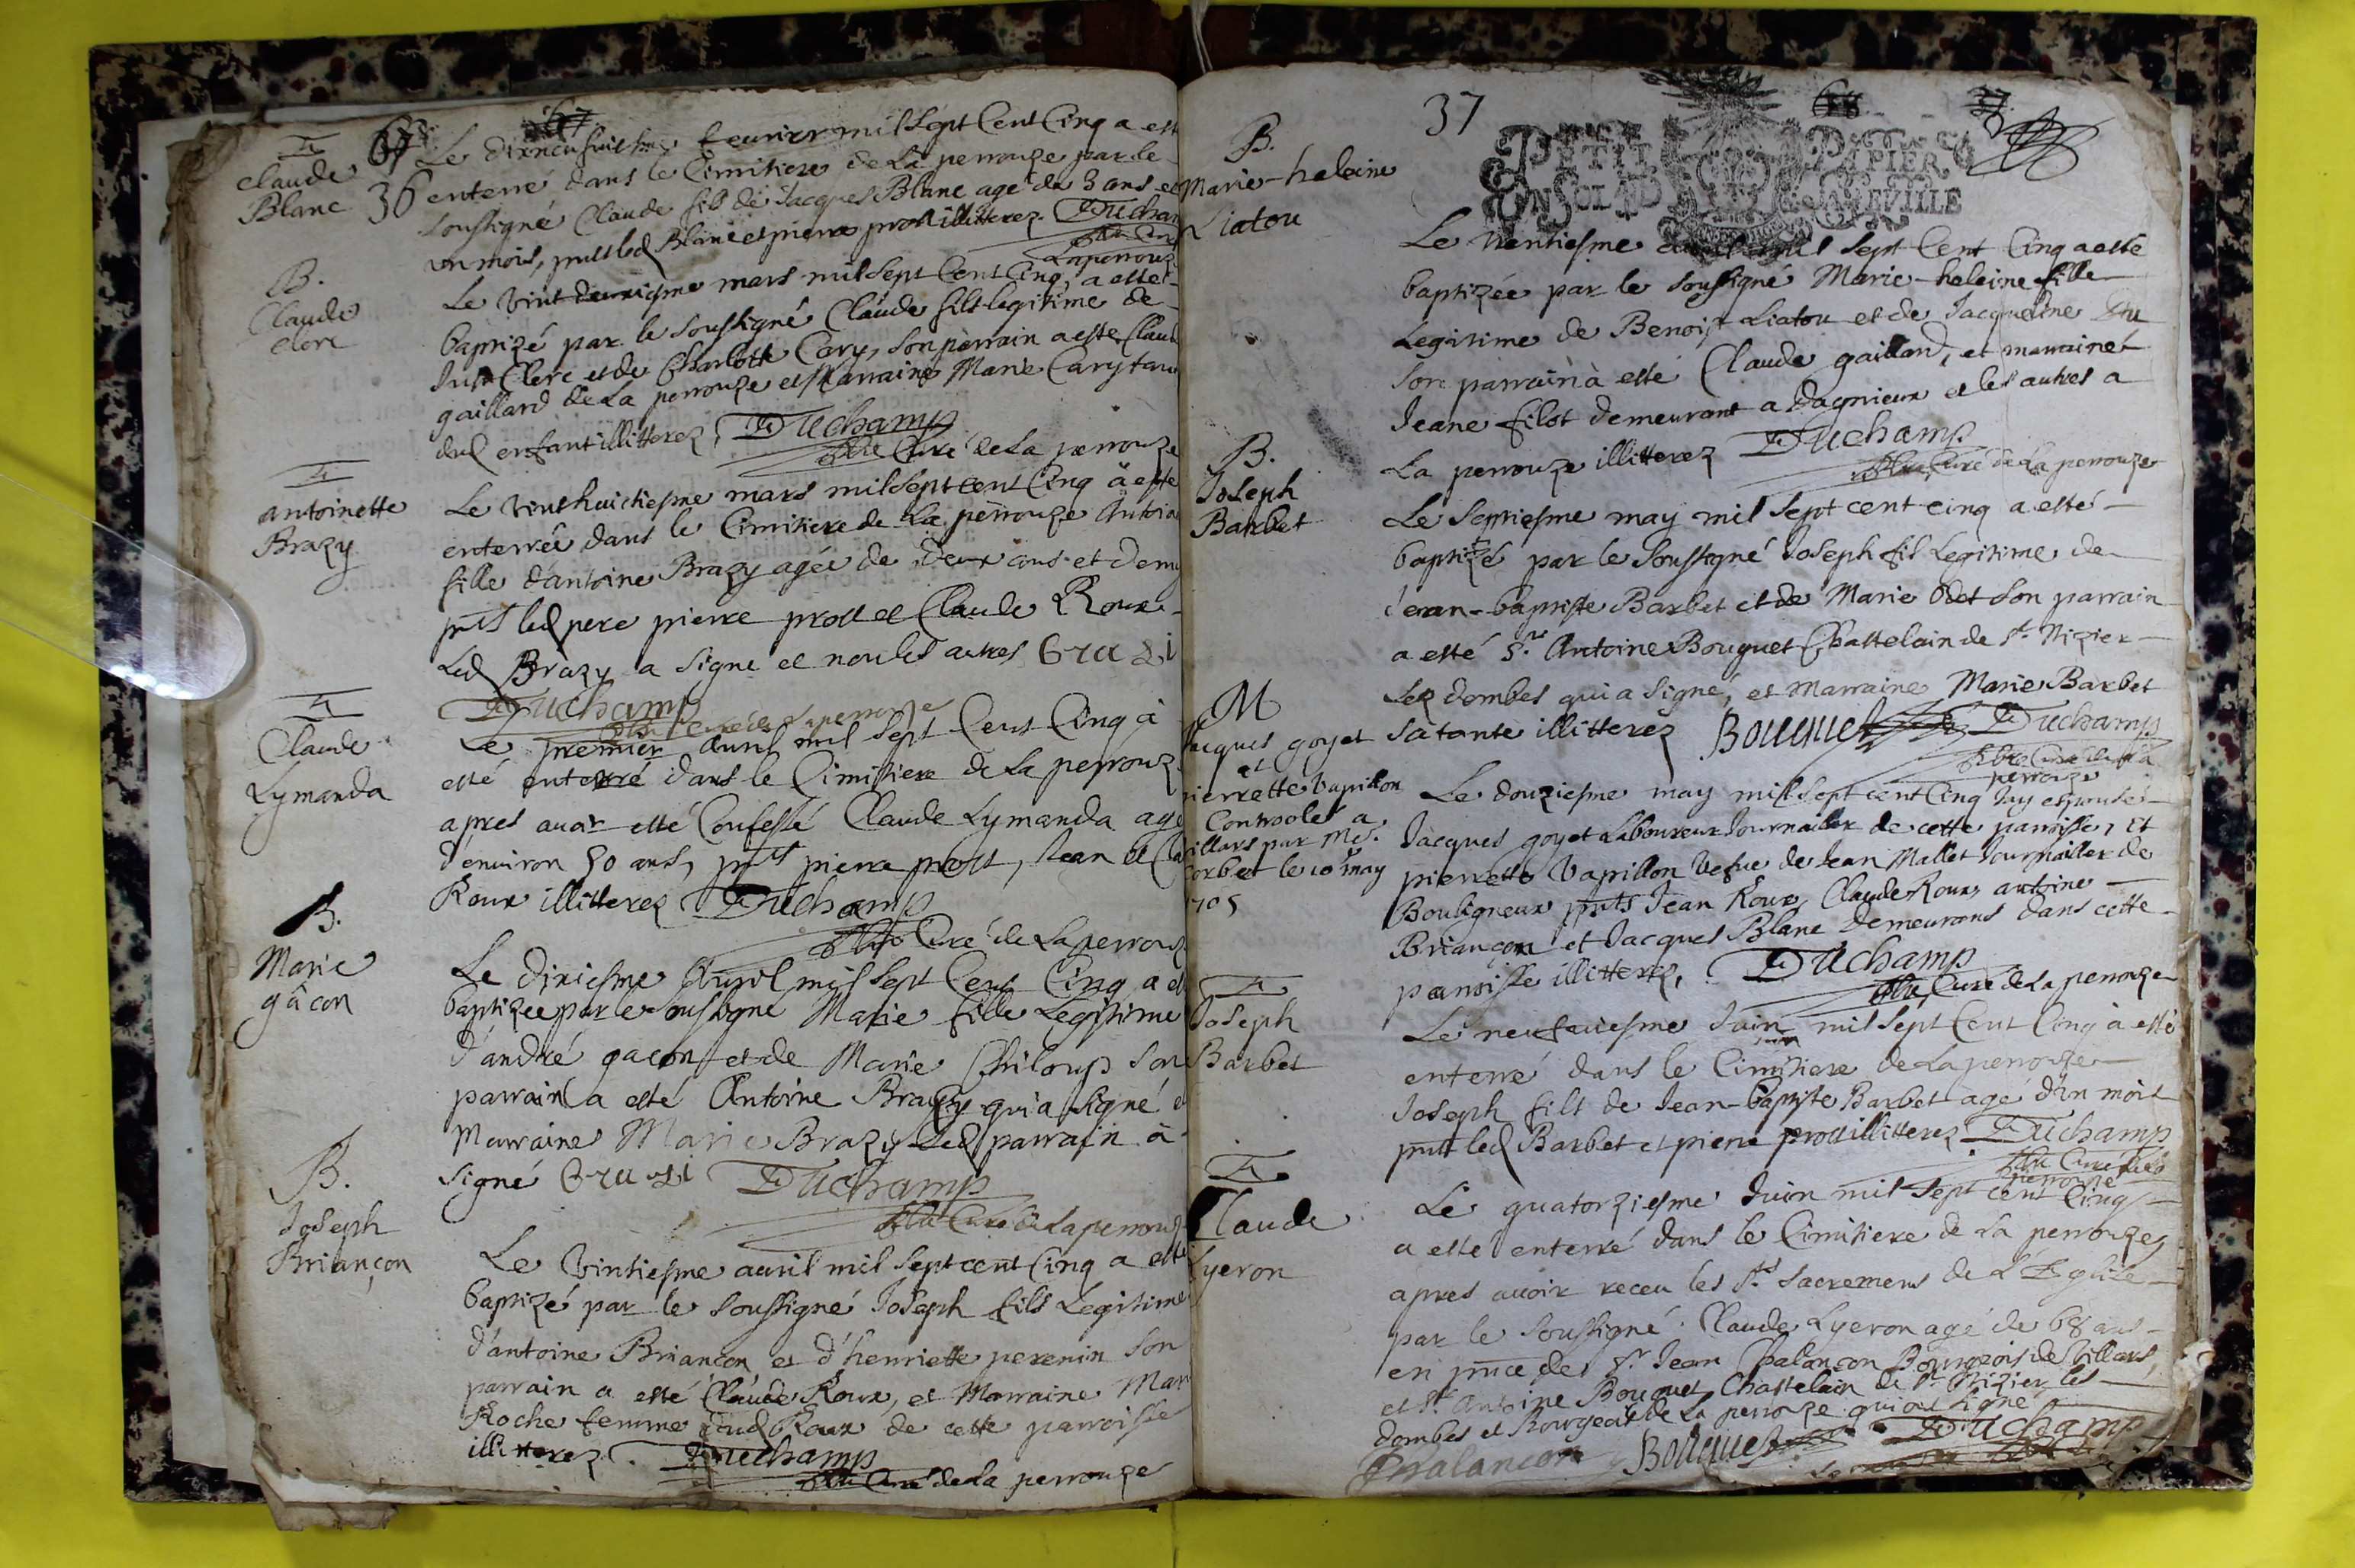 Claude
Blanc
67
36
Le dixneufuiesme feurier mil sept Cent Cinq a esté
enterré dans le Cimitiere de La perrouze par le
soussigné Claude fils de Jacques Blanc agé de 3 ans et
un mois, pnts led Blanc et pierre prost illitterez. Duchamp
Laperrouz
B.
Claude
clerc
Le vint deuxiesme mars mil sept Cent Cinq, a esté
baptizé par le soussigné Claude fils legitime de
Just Clerc et de Charlotte Cary, son parrain a esté Claude
gaillard de La perrouze et Marraine Marie Cary tante
dud enfant illitterez, Duchamp
Curé de La perrouze
antoinette
Brazy
Le vint huictiesme mars mil sept cent Cinq à esté
enterrée dans le Cimitiere de La perrouze Antoin
fille d'antoine Brazy agée de Deux ans et demy
pnts led pere pierre prost et Claude Roux
Led Brazy a signé et non les autres
Duchamp
Curé de Laperrouze
Claude
Lymanda
Le premier Auril mil sept Cent Cinq à
esté enterré dans le Cimitiere de La perrouz
apres auoir esté Confessé Claude Lymanda agé
d'enuiron 50 ans, pnts pierre prost, Jean et Cla
Roux illitterez Duchamp
Curé de Laperrouz
B.
Marie
gâcon
Le dixiesme Auril mil sept Cent Cinq a es
baptizée par le soussigné Marie fille Legitime
d'andré gacon et de Marie Philoup son
parrain a esté Antoine Brazy qui a signé e
Marraine Marie Brazy Led parrain à
signé Duchamp
Curé de La perrouz
B.
Joseph
Briançon
Le vintiesme auril mil sept cent Cinq a esté
baptizé par le soussigné Joseph fils Legitime
d'antoine Briançon et d'henriette perenin son
parrain a esté Claude Roux, et Marraine Mar
Roche femme dud Roux de cette parroisse
illitterez. Duchamp
Curé de La perrouze
37
68
37
PETIT PAPIER
B.
Marie-heleine
Liatou
Le trentiesme mil sept Cent Cinq a esté
baptizée par le soussigné Marie-heleine fille
Legitime de Benoist Liatou et de Jacqueline
son parrain à esté Claude gaillard, et marraine
Jeane filot demeurant a Dagnieux et les autres a
La perrouze illitterez Duchamp
Curé de La perrouze
B.
Joseph
Barbet
Le septiesme may mil sept cent cinq a esté
baptizé par le soussigné Joseph fils Legitime de
Jean-baptiste Barbet et de Marie Odet son parrain
a esté Sr. Antoine Bouquet Chastelain de St. Nizier
Lez dombes qui a signé, et Marraine Marie Barbet
sa tante illitterez Bouquet Duchamp
perrouze
M
Jacques goyet
et
pierrette Vapillon
Controolé a
Villars par Me.
Corbet le 10 may
1705
Le douziesme may mil sept cent Cinq Jay espousé
Jacques goyet Laboureur Journallier de cette parroisse, et
pierrette Vapillon vefue de Jean Mallet Journallier de
Bouligneux pnts Jean Roux, Claude Roux, antoine
Briançon et Jacques Blanc demeurans dans cette
parroisse illitterez, Duchamp
Curé de La perrouze
Joseph
Barbet
Le neufuiesme Juin mil sept Cent Cinq à esté
enterré dans le Cimitiere de La perrouze
Joseph fils de Jean-baptiste Barbet agé d'un mois
pnts led Barbet et pierre prost illitterez Duchamp
perrouze
Claude
Lyeron
Le quatorziesme Juin mil sept cent Cinq
a esté enterré dans le Cimitiere de La perrouze
apres auoir receu les Sts. Sacremens de L'Eglise
par le soussigné. Claude Lyeron agé de 68 ans
en pnce de Sr. Jean Chalançon Bourgeois de Villars
et Sr. Antoine Bouquet Chastelain de St. Nizier les
dombes et Bourgeois de La perrouze qui ont signé
Chalancon Bouquet Duchamp